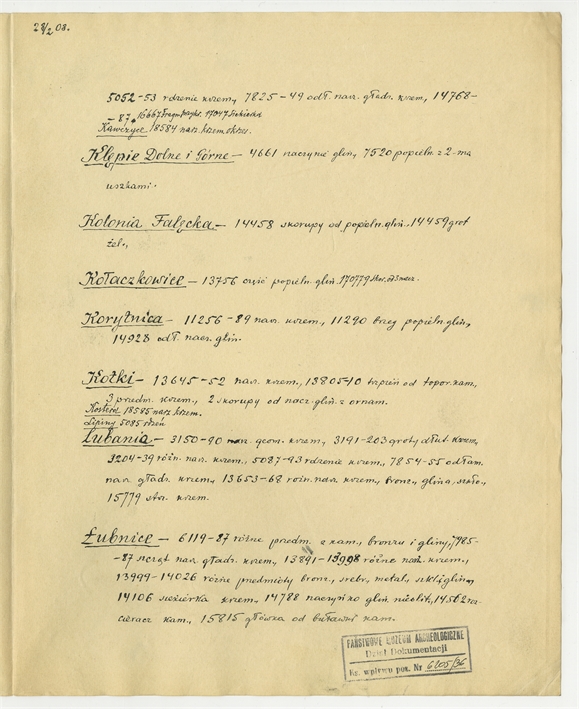 28/2 08.
5052-53 rdzenie krzem., 7825-49 odł. narz. gładz. krzem., 14768-
-87, 16667 fragm. 17047 Siekierka
Kawczyce 18584 narz. krzem. okres.
Kłępie Dolne i Górne - 4661 naczynie glin., 7520 popieln. z 2-ma
uszkami.
Kolonia Falęcka - 14458 skorupy od popieln. glin., 14459 grot
żel.,
Kołaczkowice - 13756 część popieln. glin.
Korytnica - 11256-89 narz. krzem., 11290 brzeg popieln. glin.,
14928 odł. nacz. glin.
Kotki - 13645-52 narz. krzem., 13805-10 trzpień od topor. kam.,
3 przedm. krzem., 2 skorupy od nacz. glin. z ornam.
18585 narz. krzem.
Lipiny 5085
Lubania - 3150-90 narz. geom. krzem., 3191-203 groty dłut. krzem.,
3204-39 różn. narz. krzem., 5087-93 rdzenie krzem., 7854-55 odłam.
narz. gładz. krzem., 13653-68 różn. narz. krzem., bronz., glina, szkło.,
15779 krzem.
Łubnice - 6119-87 różne przedm. z kam., bronzu i gliny, 7985-
-87 szcząt. narz. gładz. krzem., 13891-13998 różne narz. krzem.,
13999-14026 różne przedmioty bronz., srebr., metal., szkl. i glin.,
14106 siekierka krzem., 14788 naczyńko glin. neolit., 14502 roz-
cieracz kam., 15815 główka od buławy kam.
PAŃSTWOWE MUZEUM ARCHEOLOGICZNE
Dział Dokumentacji
Ks. wpływu poz. Nr 6205/36